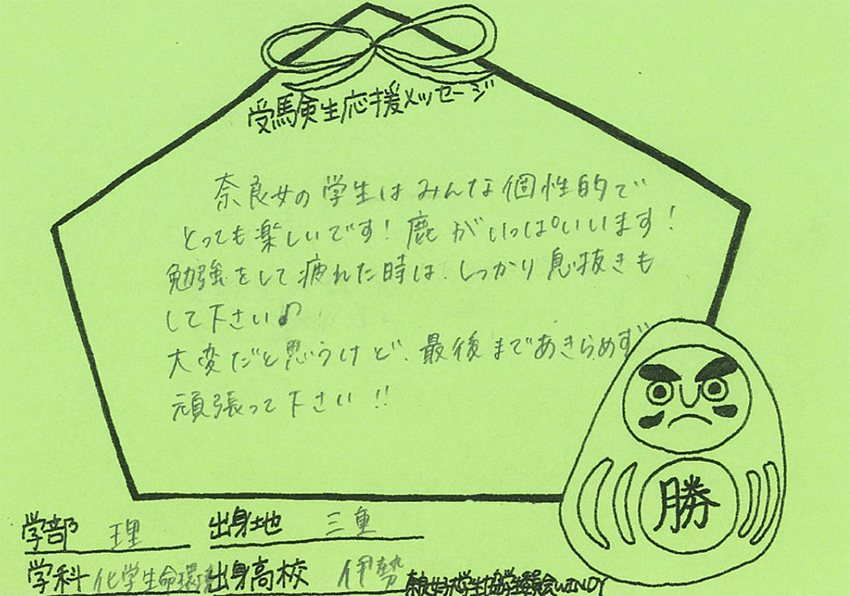 受験生応援メッセージ
奈良女の学生はみんな個性的で
とっても楽しいです!鹿がいっぱいいます!
勉強をして疲れた時は、しっかり息抜きも
して下さい♪
大変だと思うけど、最後まであきらめず
頑張って下さい!!
勝
学部 理 出身地 三重
学科 化学生命環境 出身高校 伊勢